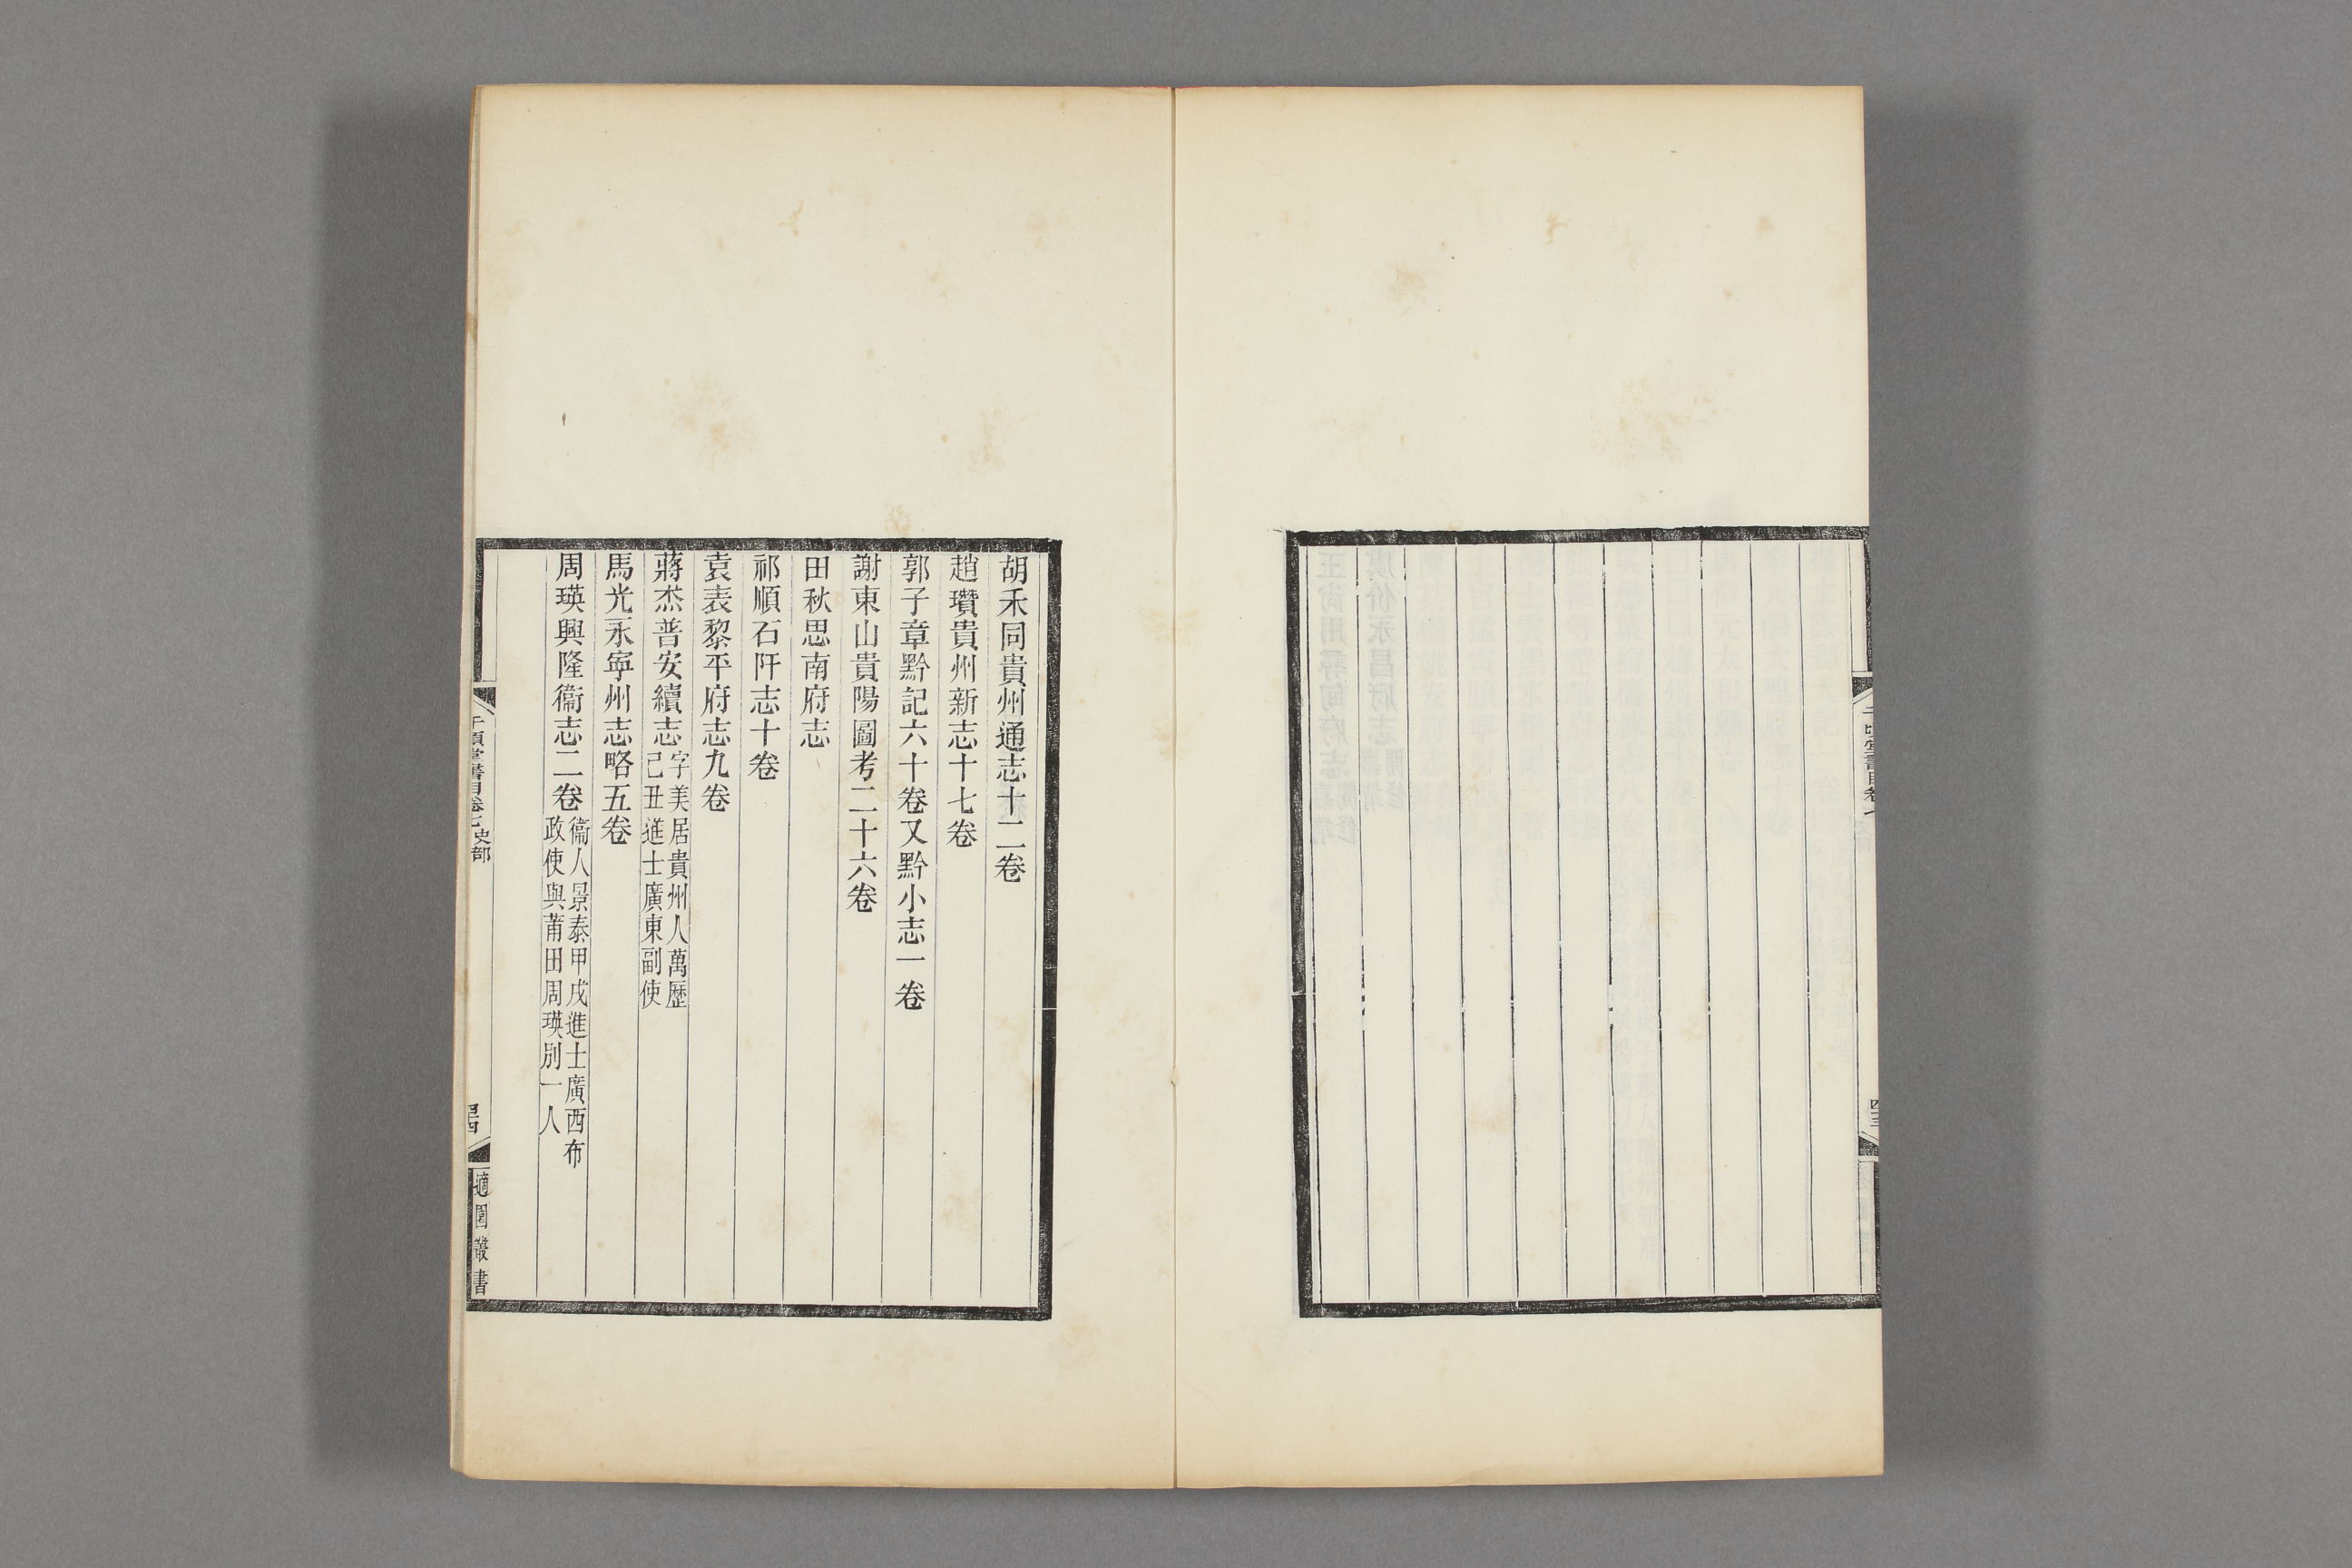 胡禾同貴州通志十二卷
趙瓚貴州新志十七卷
郭子章黔記六十卷又黔小志一卷
謝東山貴陽圖考二十六卷
田秋思南府志
祁順石阡志十卷
袁表黎平府志九卷
蔣杰普安續志字美居貴州人萬歷
己丑進士廣東副使
馬光永寧州志略五卷
周瑛興隆衞志二卷衞人景泰甲戌進士廣西布
政使與莆田周瑛別一人
千頃堂書目卷七史部
四十四
適園叢書